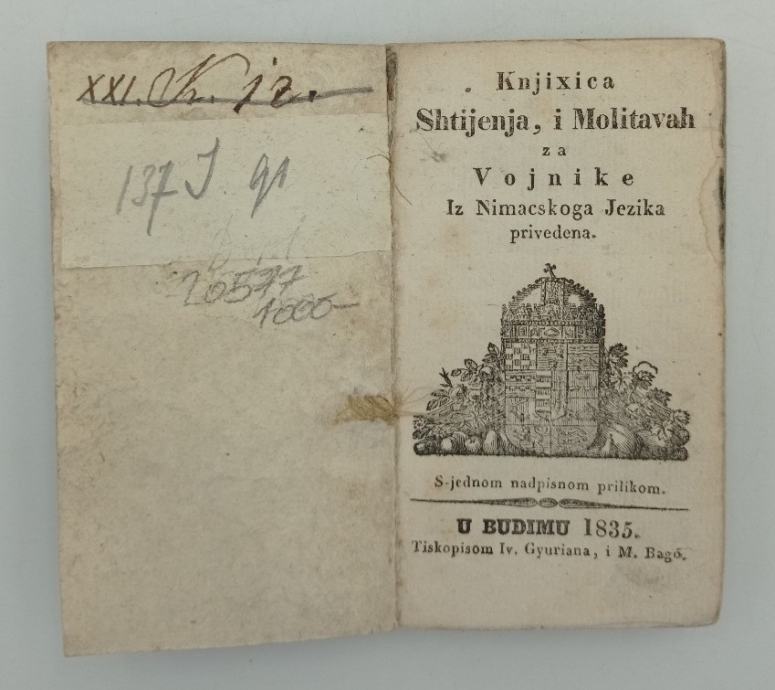 XXI. K. 12.
137 J 91
20577
1000-
Knjixica
Shtijenja, i Molitavah
za
Vojnike
Iz Nimacskoga Jezika
privedena.
S-jednom nadpisnom prilikom.
U BUDIMU 1835.
Tiskopisom Iv. Gyuriana, i M. Bagó.